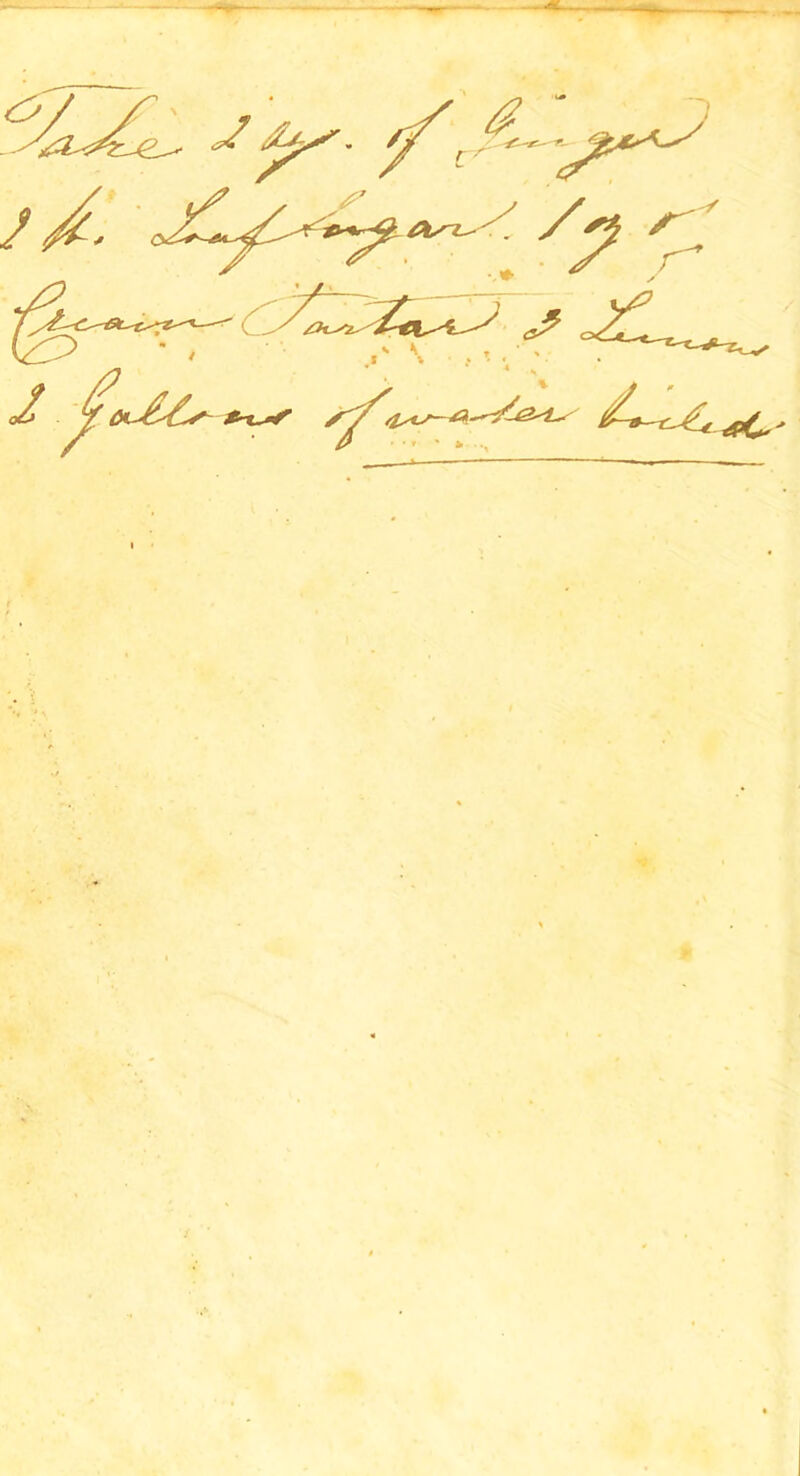 Take 2 oz. of Ginger
2 lb. Loaf Sugar. 1 oz of
Cream Tartar 3 Lemons
2 Gallons of water boiled